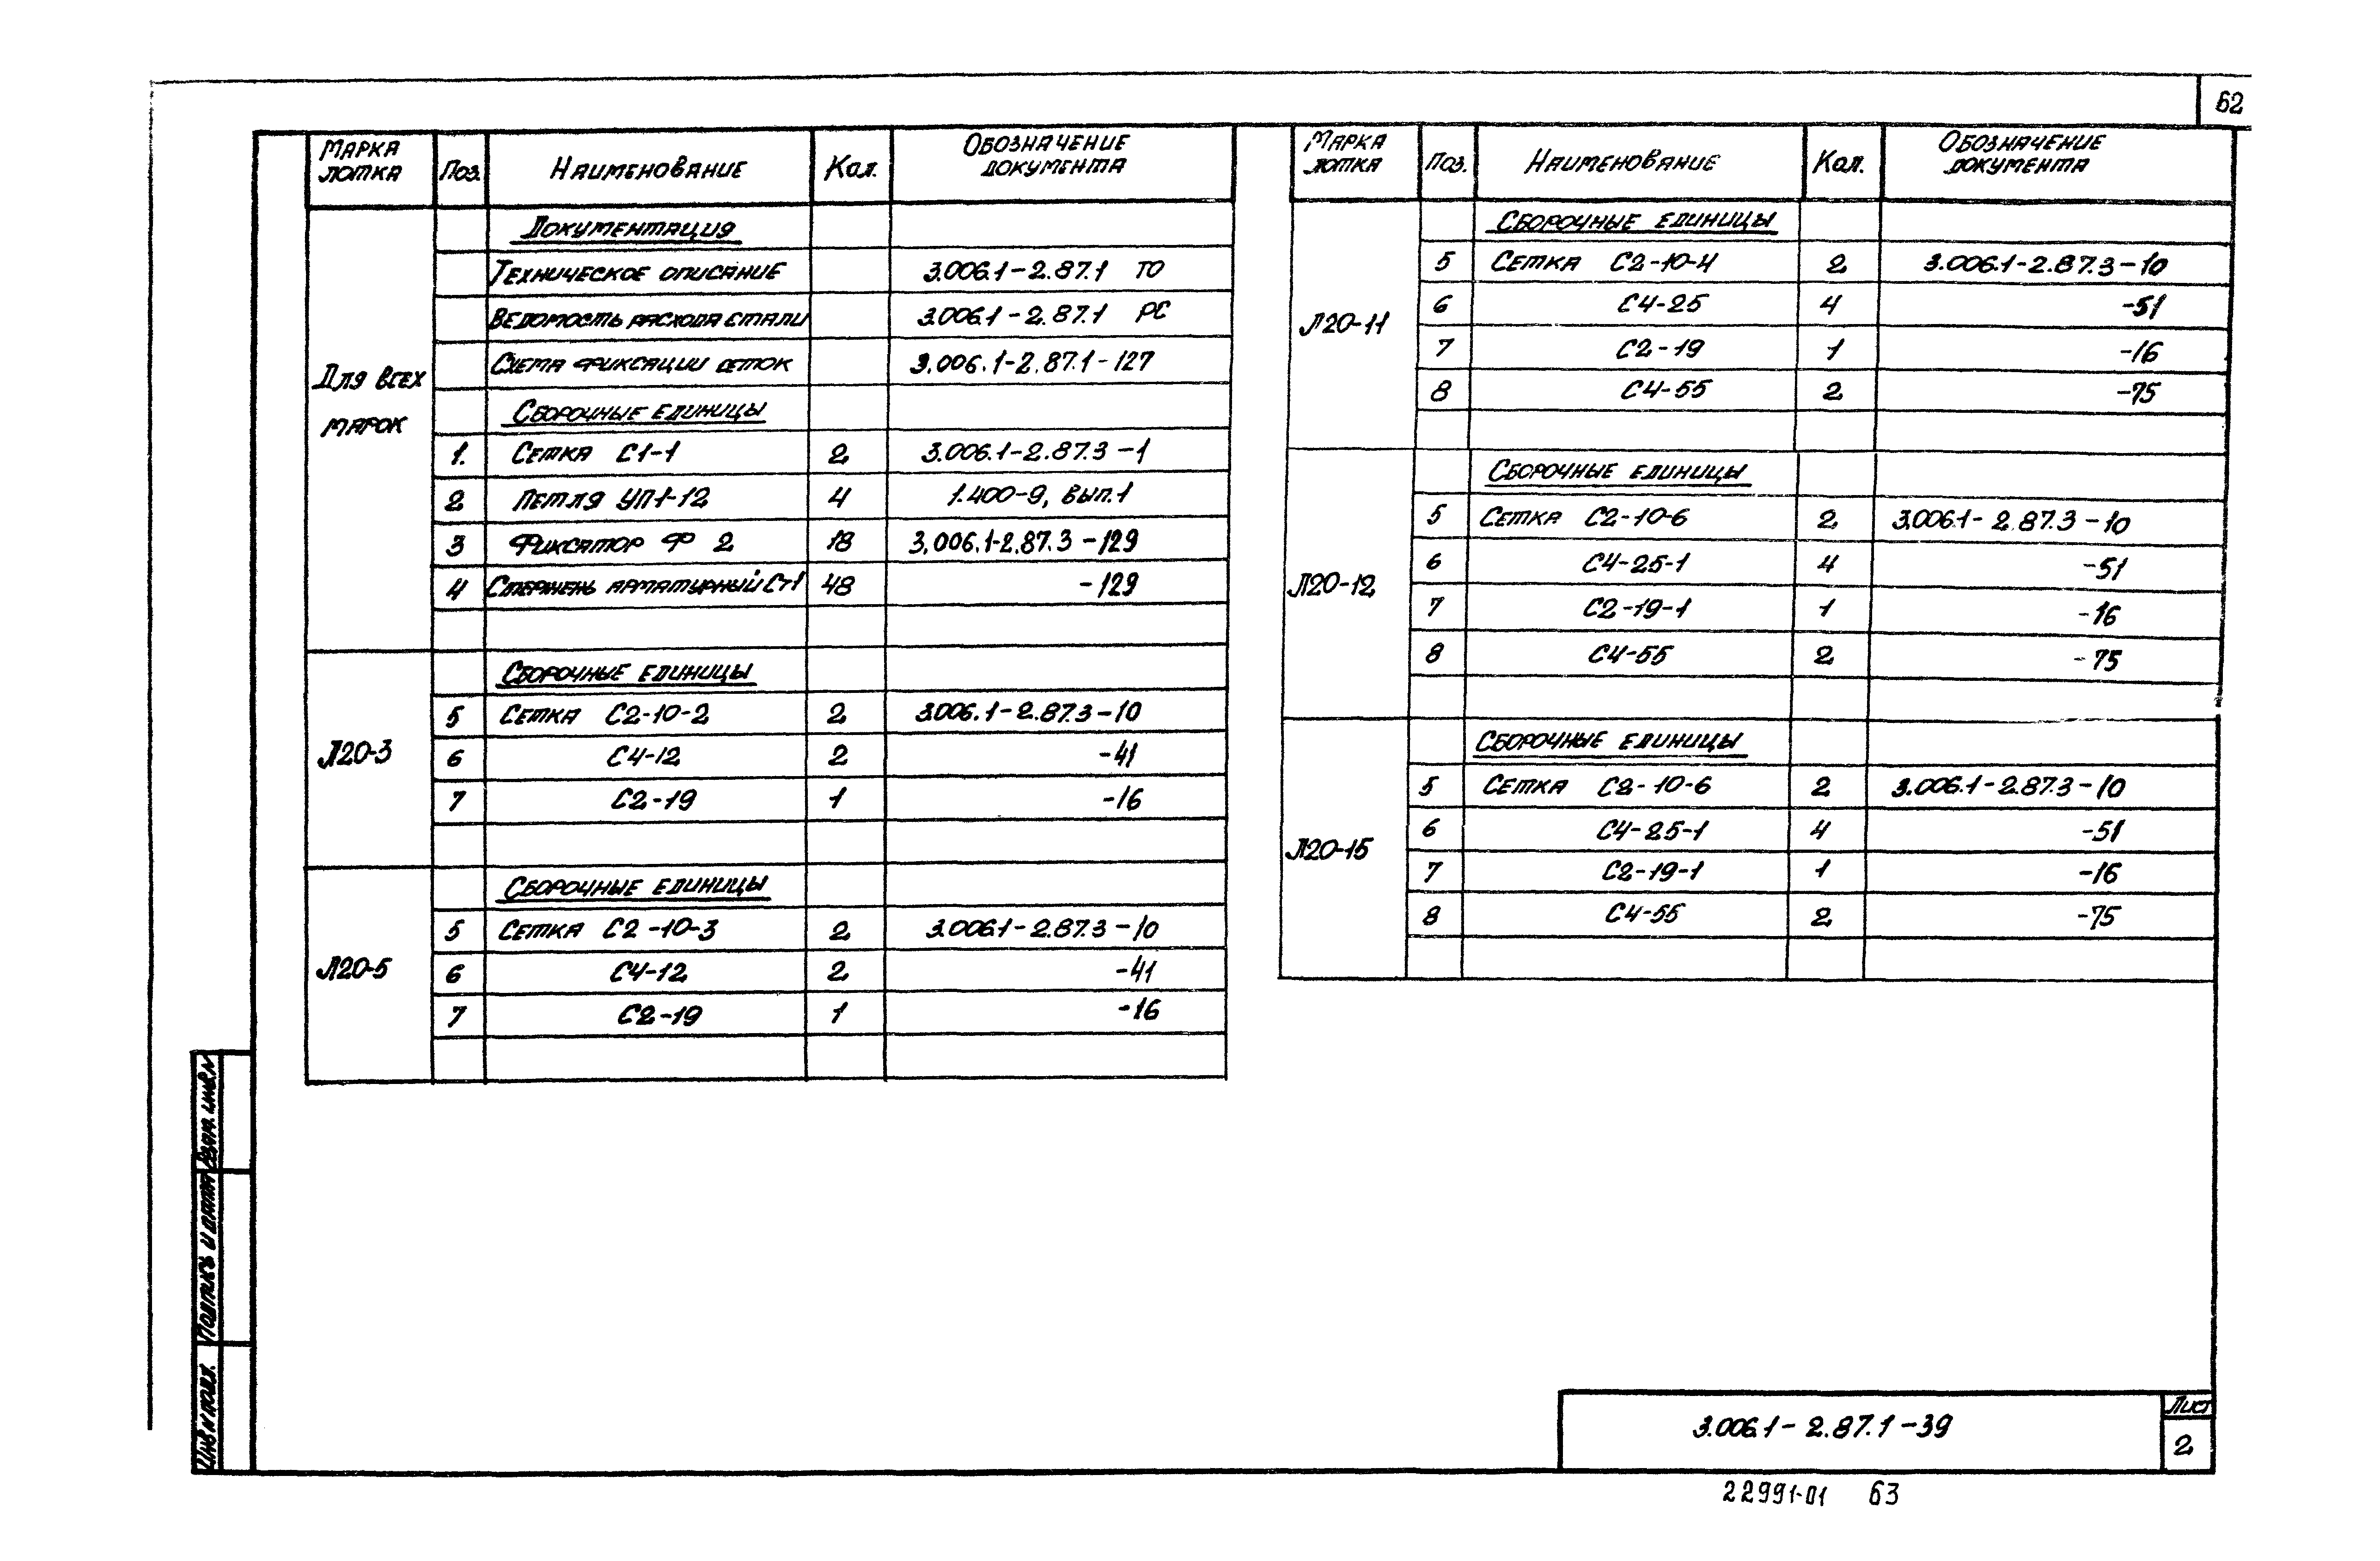 62
Марка лотка Поз. Наименование Кол. Обозначение документа
Документация
Техническое описание 3.006.1-2.87.1 ТО
Ведомость расхода стали 3.006.1-2.87.1 РС
Схема фиксации сеток 3.006.1-2.87.1-127
Для всех марок
Сборочные единицы
1. Сетка С1-1 2 3.006.1-2.87.3-1
2 Петля УП1-12 4 1.400-9, вып.1
3 Фиксатор Ф 2 18 3.006.1-2.87.3-129
4 Стержень арматурный Ст1 48 -129
Л20-3
Сборочные единицы
5 Сетка С2-10-2 2 3.006.1-2.87.3-10
6 С4-12 2 -41
7 С2-19 1 -16
Л20-5
Сборочные единицы
5 Сетка С2-10-3 2 3.006.1-2.87.3-10
6 С4-12 2 -41
7 С2-19 1 -16
Марка лотка Поз. Наименование Кол. Обозначение документа
Л20-11
Сборочные единицы
5 Сетка С2-10-4 2 3.006.1-2.87.3-10
6 С4-25 4 -51
7 С2-19 1 -16
8 С4-55 2 -75
Л20-12
Сборочные единицы
5 Сетка С2-10-6 2 3.006.1-2.87.3-10
6 С4-25-1 4 -51
7 С2-19-1 1 -16
8 С4-55 2 -75
Л20-15
Сборочные единицы
5 Сетка С2-10-6 2 3.006.1-2.87.3-10
6 С4-25-1 4 -51
7 С2-19-1 1 -16
8 С4-55 2 -75
Взам. инв.N
Подпись и дата
Инв.N подл.
3.006.1-2.87.1-39
Лист
2
22991-01 63